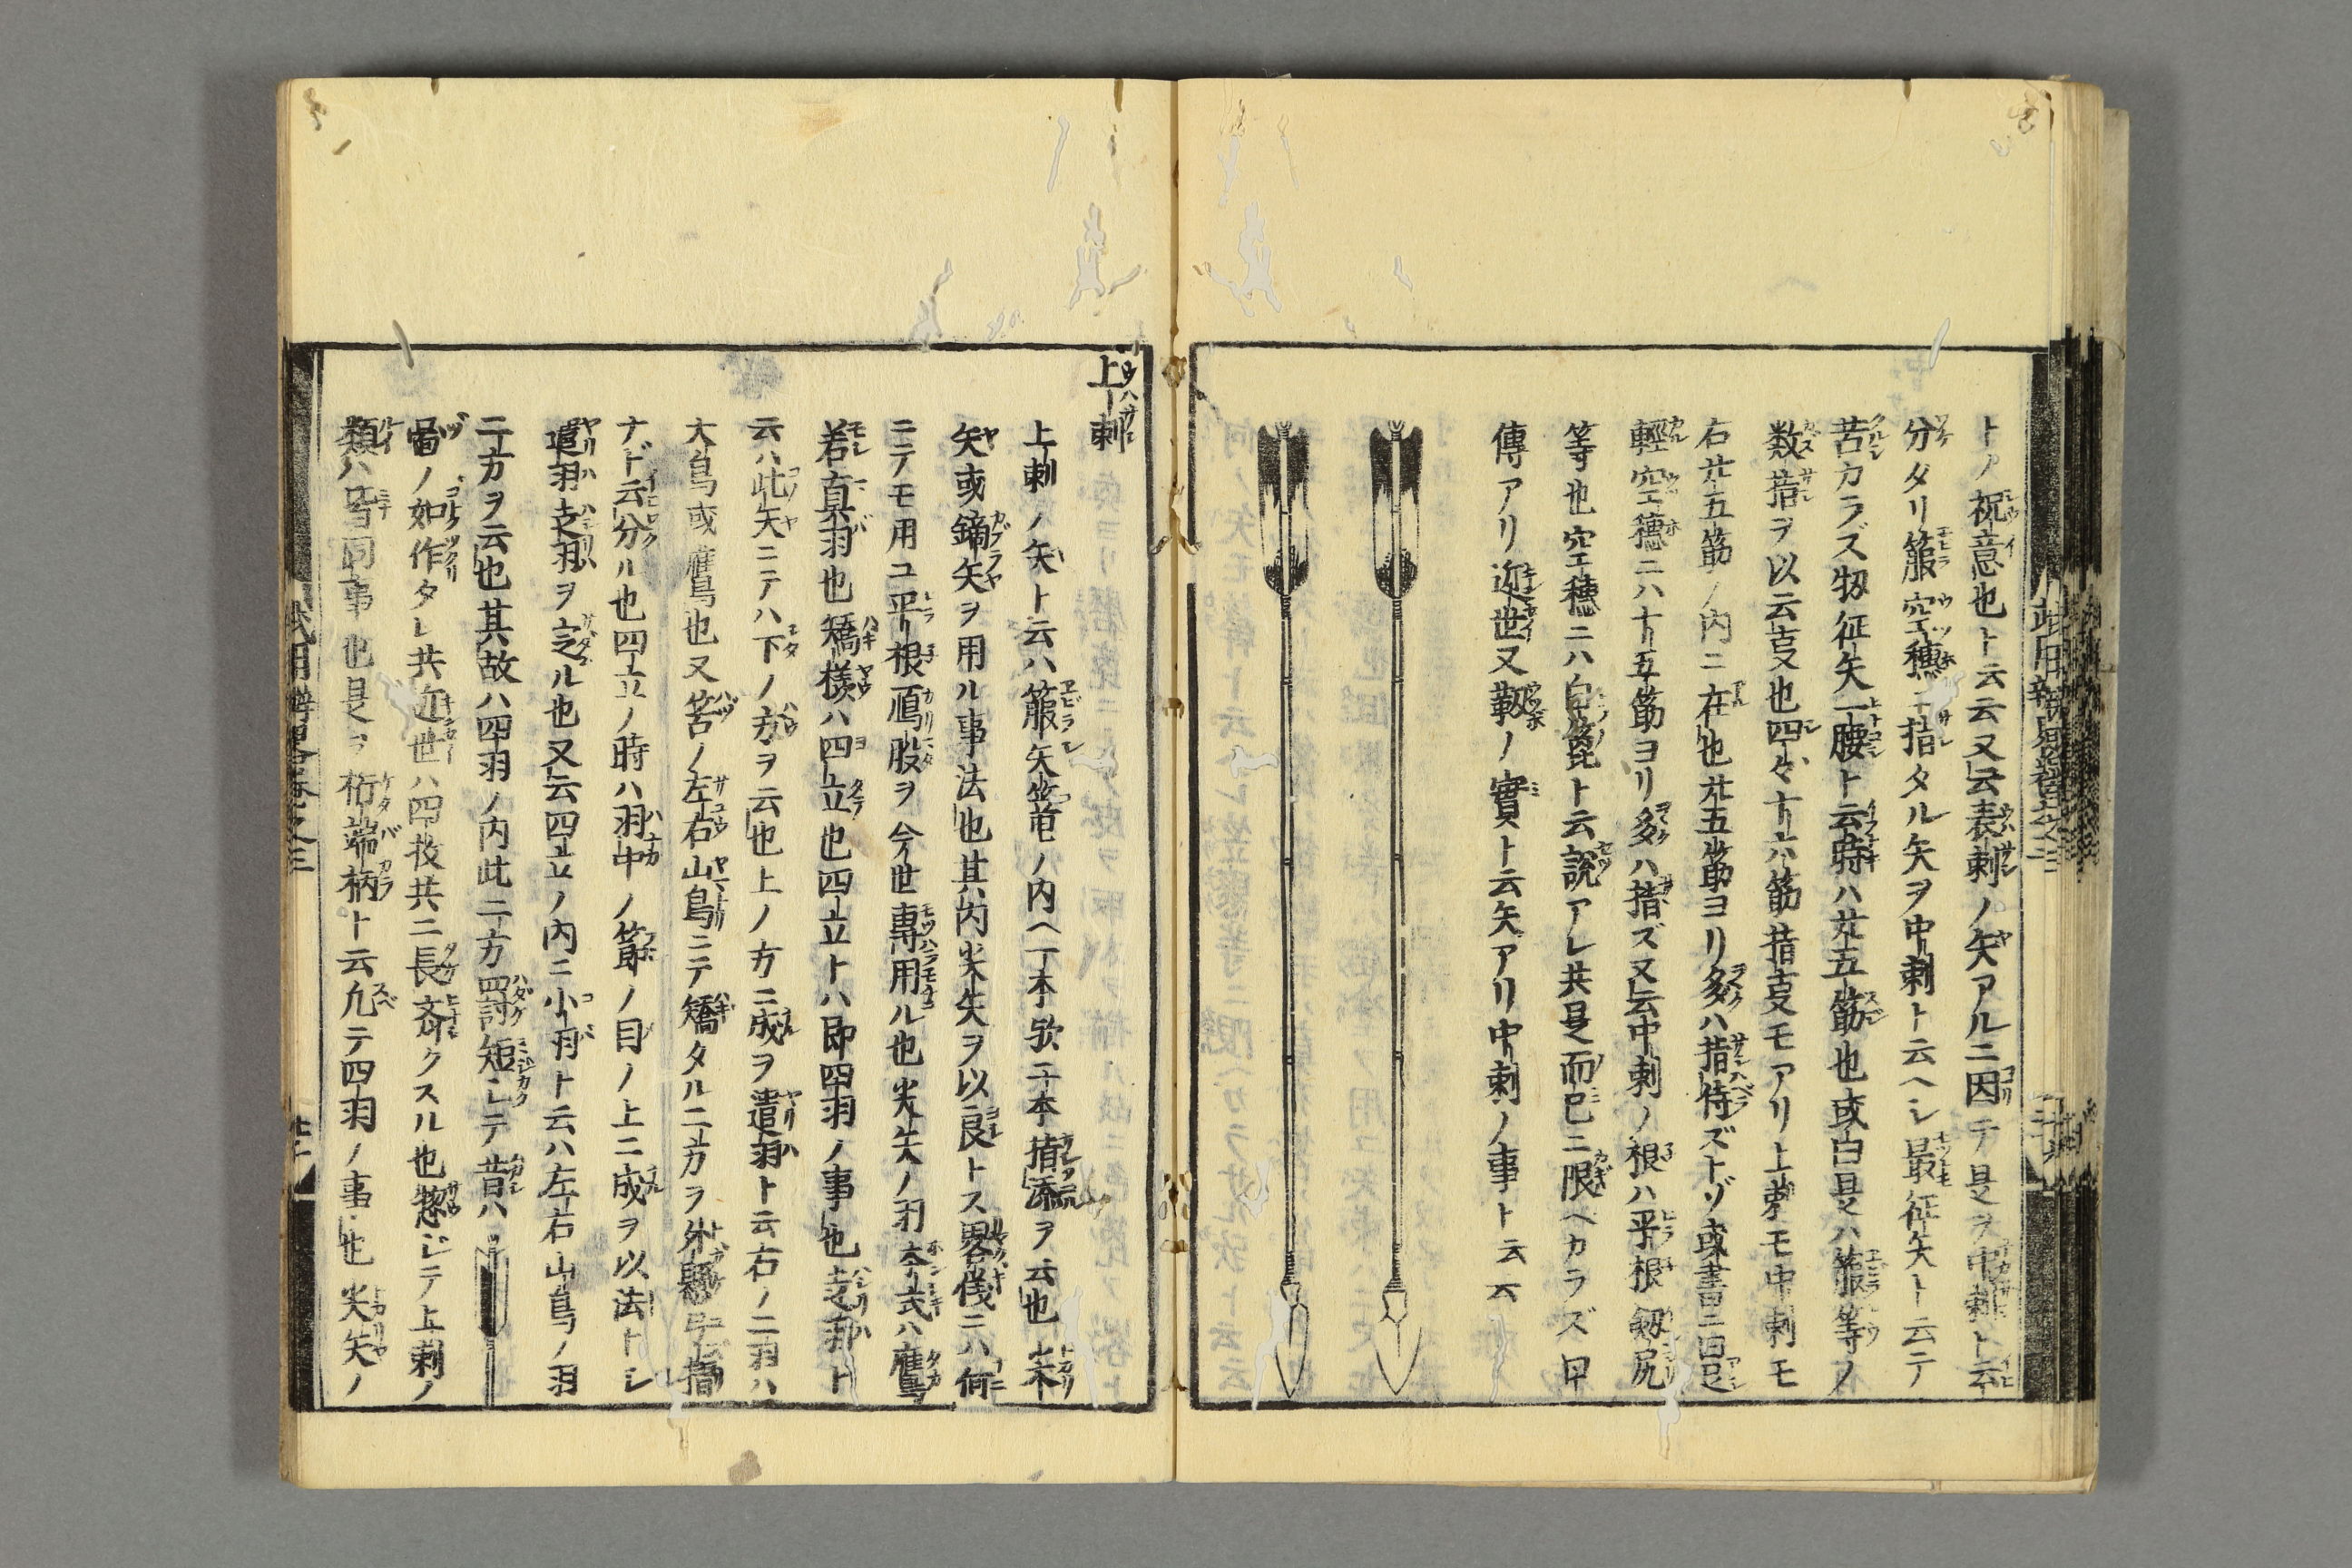 トノ祝意也ト云云又云表刺ノ矢アルニ因テ是ヲ中刺ト云
分タリ箙空穗ニ揩タル矢ヲ中刺ト云ヘシ最征矢ト云テ
苦カラズ扨征矢一腰ト云時ハ廿五筋也或曰是ハ箙等ノ
数揩ヲ以云叓也四々十六筋揩叓モアリ上刺モ中刺モ
右廿五筋ノ内ニ在也廿五筋ヨリ多クハ揩侍ズトゾ或書ニ曰足
輕空穗ニハ十五筋ヨリ多ハ揩ズ又云中刺ノ根ハ平根劔尻
等也空穗ニハ白篦ト云説アレ共是而已ニ限ヘカラズ口
傳アリ近世又靱ノ實ト云矢アリ中刺ノ事ト云云
上刺
上刺ノ矢ト云ハ箙矢篭ノ内ヘ一本欤二本揩添ヲ云也
矢或鏑矢ヲ用ル事法也其内尖矢ヲ以良トス畧儀ニハ何
ニテモ用ユ平根鴈股ヲ今世専用ル也尖矢ノ羽本式ハ鷹
若真羽也矯様ハ四立也四立トハ即四羽ノ事也走羽ト
云ハ此矢ニテハ下ノ方ヲ云也上ノ方ニ成ヲ遣羽ト云右ノ二羽ハ
大鳥或鷹也又筈ノ左右山鳥ニテ矯タルニ方ヲ外懸弓揩
ナド云分ル也四立ノ時ハ羽中ノ節ノ目ノ上ニ成ヲ以法トシ
遣羽走羽ヲ定ル也又云四立ノ内ニ小羽ト云ハ左右山鳥ノ羽
二方ヲ云也其故ハ四羽ノ内此二方短シテ昔ハ
畵ノ如作タレ共近世ハ四枚共ニ長斎クスル也惣ジテ上刺ノ
類ハ皆同事也是ヲ桁端柄ト云凢テ四羽ノ事也尖矢ノ